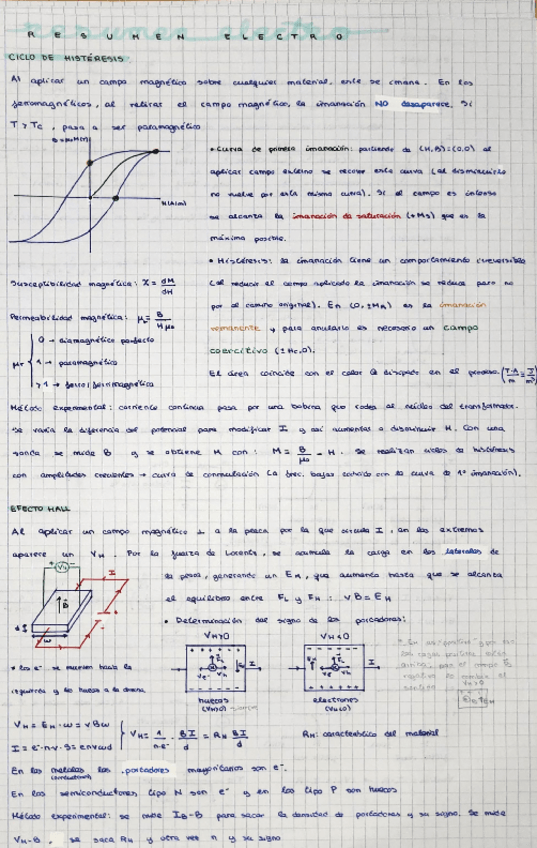 RESUMEN ELECTRO
CICLO DE HISTÉRESIS
Al aplicar un campo magnético sobre cualquier material, este se imana. En los
ferromagnéticos, al retirar el campo magnético, la imanación NO desaparece. Si
T > Tc, pasa a ser paramagnético
H(A/m)
• Curva de primera imanación: partiendo de (H,B)=(0,0) al
aplicar campo externo se recorre esta curva (al disminuirlo
no vuelve por esta misma curva). Si el campo es intenso
se alcanza la imanación de saturación (+Ms) que es la
máxima posible.
• Histéresis: la imanación tiene un comportamiento irreversible
(al reducir el campo aplicado la imanación se reduce pero no
por el camino original). En (0,±MR) es la imanación
remanente y para anularlo es necesario un campo
coercitivo (±Hc,0).
El área coincide con el calor Q disipado en el proceso
Susceptibilidad magnética: χ = dM/dH
Permeabilidad magnética: μr = B/Hμ0
μr
0 → diamagnético perfecto
1 → paramagnético
>1 → ferro/ferrimagnético
Método experimental: corriente continua pasa por una bobina que rodea al núcleo del transformador.
Se varía la diferencia del potencial para modificar I y así aumentar o disminuir H. Con una
sonda se mide B y se obtiene M con: M = B/μ0 - H. Se realizan ciclos de histéresis
con amplitudes crecientes → curva de conmutación (a frec. bajas coincide con la curva de 1ª imanación).
EFECTO HALL
Al aplicar un campo magnético ⊥ a la placa por la que circula I, en los extremos
aparece un VH. Por la fuerza de Lorentz, se acumula la carga en los laterales de
la placa, generando un EH, que aumenta hasta que se alcanza
el equilibrio entre FL y FH: vB = EH
• Determinación del signo de los portadores:
VH
I
B
d
w
VH>0
I
huecos
(VH>0)
VH<0
I
electrones
(VH<0)
• Los e- se mueven hacia la
izquierda y los huecos a la derecha
VH = EH · w = vBw
I = e-·n·v·S = envwd
VH = 1/n·e- · BI/d = RH BI/d
RH: característico del material
En los metales los portadores mayoritarios son e-.
(conductores)
En los semiconductores tipo N son e- y en los tipo P son huecos
Método experimental: se mide IB-B para sacar la densidad de portadores y su signo. Se mide
VH-B, se saca RH y otra vez n y su signo